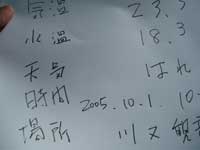 気温 23.3
水温 18.3
天気 はれ
時間 2005.10.1. 10
場所 川又観